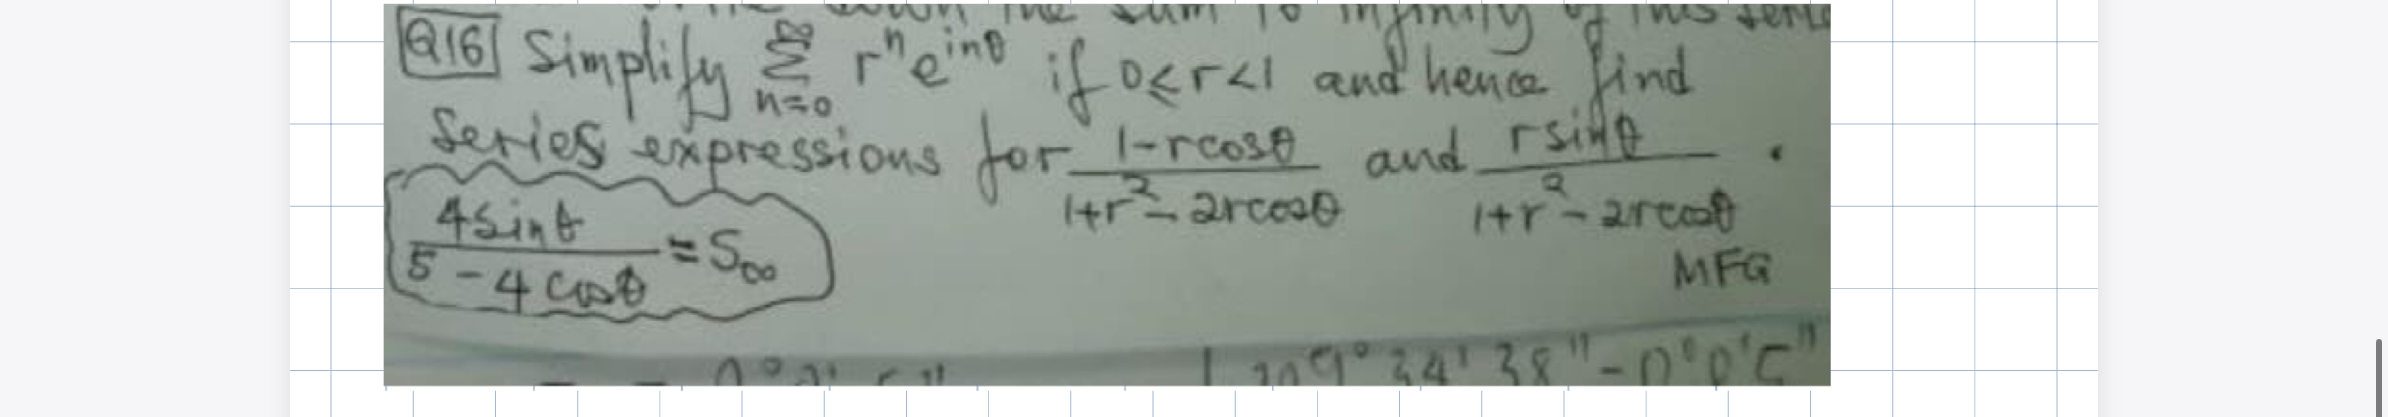 down the sum to infinity of this serie
Q16 Simplify ∞ Σ n=0 rⁿe^{inθ} if 0≤r<1 and hence find
series expressions for (1-rcosθ)/(1+r²-2rcosθ) and (rsinθ)/(1+r²-2rcosθ).
4sinθ/(5-4cosθ) = S∞
MFG
109°34'38"-0°0'5"